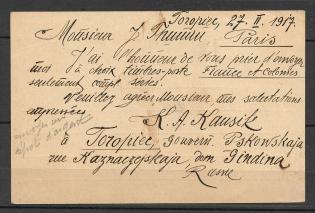 Toropiec, 27. II. 1917.
Monsieur J. Thumin Paris
J'ai l'honneur de vous prier d'envoyer
moi à choix timbres-poste France et Colonies
seulement compl. séries.
Veuillez agréer Monsieur, mes salutations
empressées
K. A. Kausik
à Toropiec, gouvern. Pskowskaja
rue Kaznaczejskaja, dom Dindina
Russie